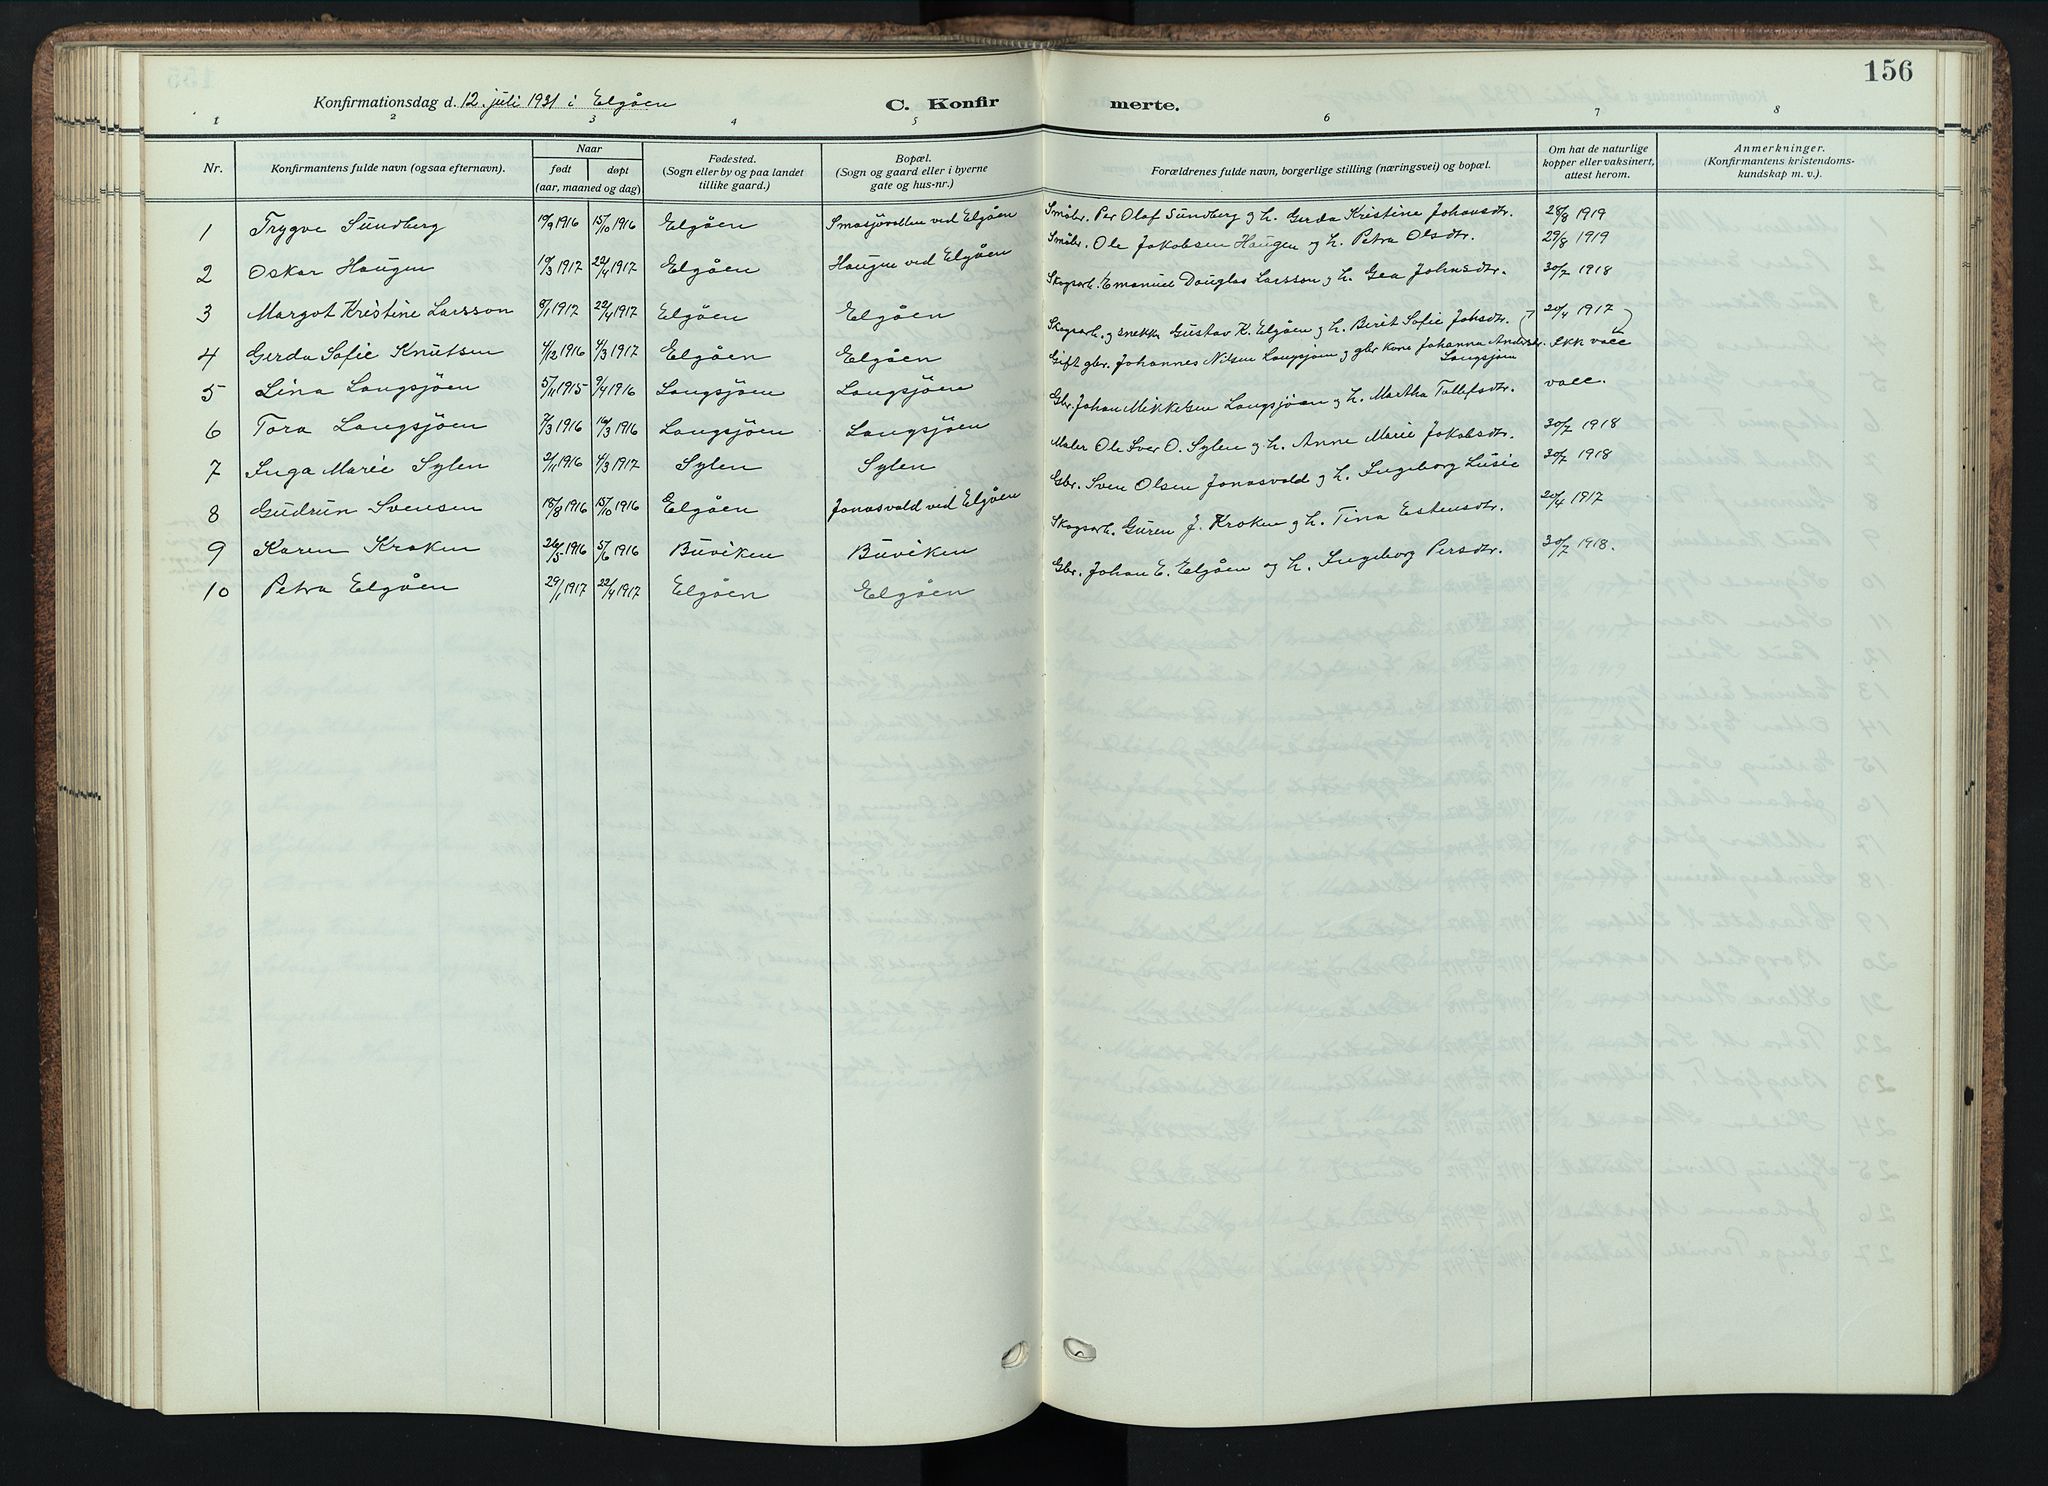 156
Konfirmationsdag d. 12. juli 1931 i Elgåen C. Konfirmerte.
1 2 3 4 5 6 7 8
Nr. Konfirmantens fulde navn (ogsaa efternavn). Naar født døpt (aar, maaned og dag) Fødested. (Sogn eller by og paa landet tillike gaard.) Bopæl. (Sogn og gaard eller i byerne gate og hus-nr.) Forældrenes fulde navn, borgerlige stilling (næringsvei) og bopæl. Om hat de naturlige kopper eller vaksinert, attest herom. Anmerkninger. (Konfirmantens kristendomskundskap m. v.)
1 Trygve Sundberg 19/9 1916 15/10 1916 Elgåen Småsjøvollen ved Elgåen Småbr. Per Olaf Sundberg og h. Gerda Kristine Johansdtr. 28/8 1919
2 Oskar Haugen 19/3 1917 22/4 1917 Elgåen Haugne ved Elgåen Småbr. Ole Jakobsen Haugen og h. Petra Olsdtr. 29/8 1919
3 Margot Kristine Larsson 8/1 1917 22/4 1917 Elgåen Elgåen Skogsarb. Emanuel Douglas Larsson og h. Gea Johnsdtr. 30/7 1918
4 Gerda Sofie Knutsen 4/12 1916 4/3 1917 Elgåen Elgåen Skogsarb. og snekker Gustav K. Elgåen og h. Berit Sofie Johsdtr. 20/4 1917
5 Lina Langsjøen 5/11 1915 9/4 1916 Langsjøen Langsjøen Gift gbr. Johannes Nilsen Langsjøen og gbr kone Johanna Andersdtr. Langsjøen ikk vacc
6 Tora Langsjöen 7/3 1916 16/3 1916 Langsjöen Langsjöen Gbr. Johan Mikkelsen Langsjöen og h. Martha Tollefsdtr. vacc.
7 Inga Marie Sylen 2/11 1916 4/3 1917 Sylen Sylen Maler Ole Iver O. Sylen og h. Anne Marie Jakobsdtr. 30/7 1918
8 Gudrun Svensen 18/8 1916 15/10 1916 Elgåen Jonasvold ved Elgåen Gbr. Sven Olsen Jonasvold og h. Ingeborg Lusie 30/7 1918
9 Karen Kroken 26/5 1916 5/6 1916 Buviken Buviken Skogsarb. Guren J. Kroken og h. Tina Estensdtr. 20/4 1917
10 Petra Elgåen 29/1 1917 22/4 1917 Elgåen Elgåen Gbr. Johan E. Elgåen og h. Ingeborg Persdtr. 30/7 1918.